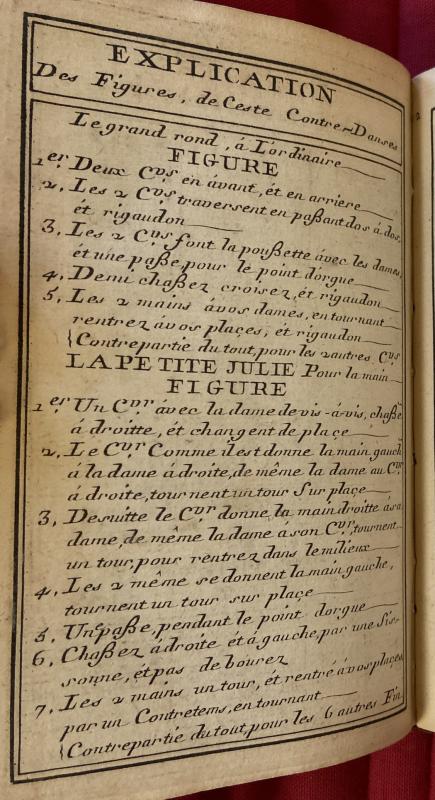 EXPLICATION
Des Figures, de Ceste Contre-Danses
Le grand rond, á L'ordinaire
FIGURE
1.er Deux C.vrs en ávant, ét en arriere
2. Les 2 C.vrs traversent en paßant dos á dos,
ét rigaudon
3. Les 2 C.vrs font la poußette ávec les dames,
ét une paße, pour le point d'orgue
4. Demi chaßez croisez, ét rigaudon
5. Les 2 mains ávos dames, en tournant
rentrez ávos plaçes, ét rigaudon
Contrepartie du tout, pour les 2 autres C.vrs
LA PETITE JULIE Pour la main
FIGURE
1.er Un C.vr ávec la dame de vis-á-vis, chaße
á droitte, ét changent de plaçe
2. Le C.vr Comme il est donne la main gauch
á la dame á droite, de même la dame au C.vr
á droite, tournent un tour Sur plaçe
3. Desuitte le C.vr donne la main droitte asa
dame, de même la dame á son C.vr, tournent
un tour, pour rentrez dans le milieux
4. Les 2 même se donnent la main gauche,
tournent un tour sur plaçe
5. Une paße, pendant le point d'orgue
6. Chaßez á droite ét á gauche, par une Sis-
sonne, ét pas de bourez
7. Les 2 mains un tour, ét rentré á vos plaçes
par un Contretems, en tournant
Contrepartie du tout, pour les 6 autres Fin